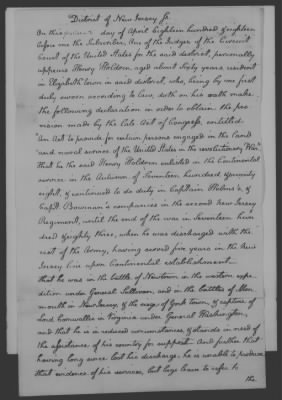 District of New Jersey Ss
On this day of April Eighteen hundred & eighteen
before me the Subscriber, One of the Judges of the Circuit
Court of the United States for the said district, personally
appears Henry Holdron aged about Sixty years, resident
in Elizabeth town in said district, who, being by me first
duly sworn according to law, doth on his oath make
the following declaration in order to obtain the pro
vision made by the late Act of Congress, entitled
"An Act to provide for certain persons engaged in the land
and naval service of the United States in the revolutionary War"
That he the said Henry Holdron enlisted in the Continental
service in the Autumn of Seventeen hundred & seventy
eight, & continued to do duty in Captain Holmes's, &
Capt Bowman's companies in the second New Jersey
Regiment, until the end of the war in Seventeen hun
dred & eighty three, when he was discharged with the
rest of the Army, having served five years in the New
Jersey line upon Continental establishment
that he was in the battle of Newtown in the western expe
dition under General Sullivan, and in the battles of Mon
mouth in New Jersey, & the siege of York town, & capture of
Lord Cornwallis in Virginia under General Washington,
and that he is in reduced circumstances, & stands in need of
the assistance of his country for support And further that
having long since lost his discharge, he is unable to produce
that evidence of his services, but begs leave to refer to
the